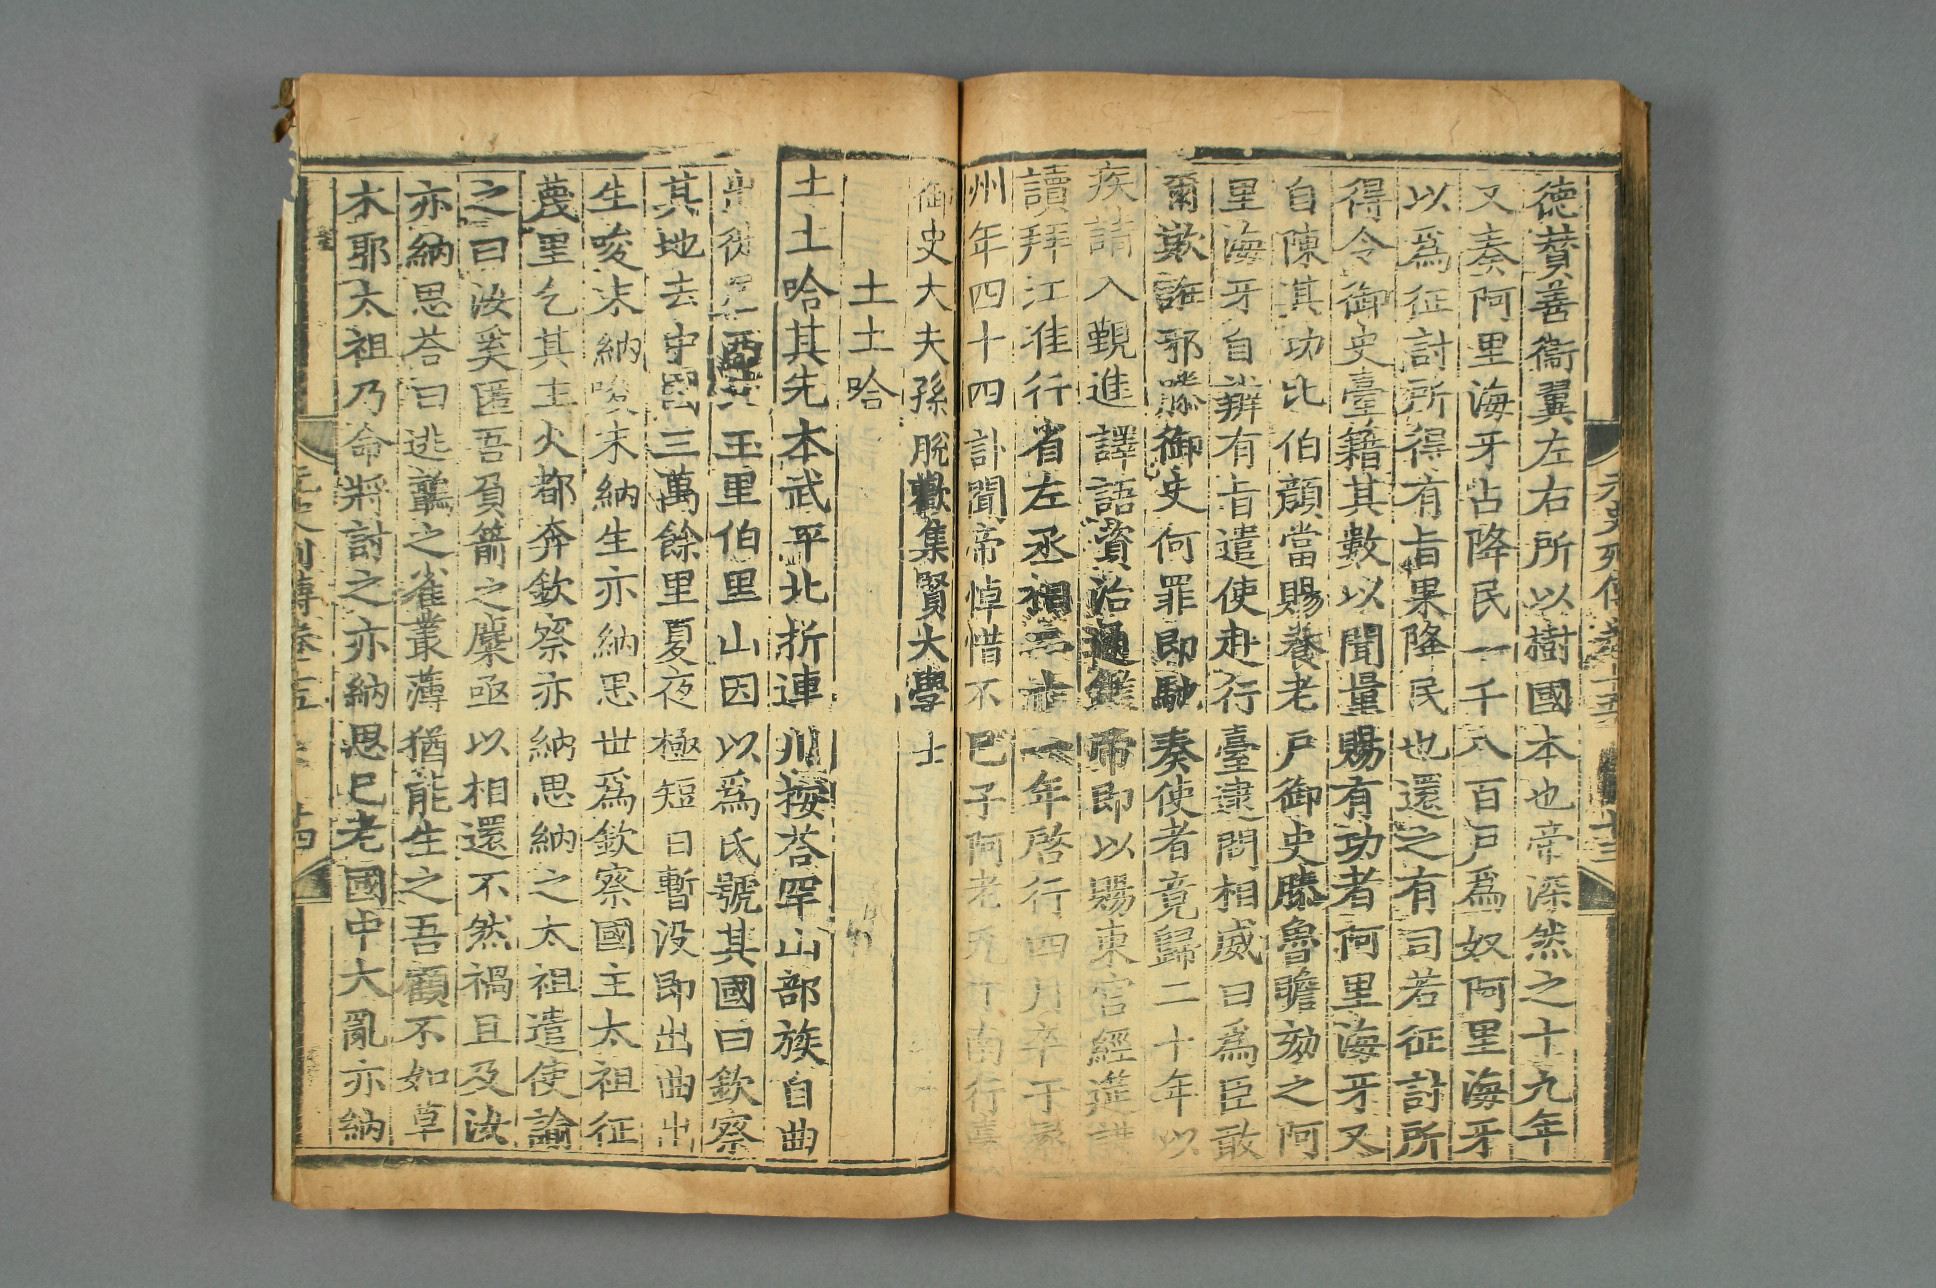 德贊善衞翼左右所以樹國本也帝深然之十九年
又奏阿里海牙占降民一千八百戶爲奴阿里海牙
以爲征討所得有旨果降民也還之有司若征討所
得令御史臺籍其數以聞量賜有功者阿里海牙又
自陳其功比伯顏當賜養老戶御史滕魯瞻劾之阿
里海牙自辨有旨遣使赴行臺逮問相威曰爲臣敢
爾欺誑邪滕御史何罪即馳奏使者竟歸二十年以
疾請入覲進譯語資治通鑑帝即以賜東宮經筵講
讀拜江淮行省左丞相二十一年啓行四月卒于蠡
州年四十四訃聞帝悼惜不已子阿老瓦丁南行臺
御史大夫孫脫歡集賢大學士
土土哈
土土哈其先本武平北折連川按荅罕山部族自曲
出徙居西北玉里伯里山因以爲氏號其國曰欽察
其地去中國三萬餘里夏夜極短日暫没即出曲出
生唆末納唆末納生亦納思世爲欽察國主太祖征
蔑里乞其主火都奔欽察亦納思納之太祖遣使諭
之曰汝奚匿吾負箭之麋亟以相還不然禍且及汝
亦納思荅曰逃鸇之雀叢薄猶能生之吾顧不如草
木耶太祖乃命將討之亦納思已老國中大亂亦納
元史列傳卷十五 十三
元史列傳卷十五 十四